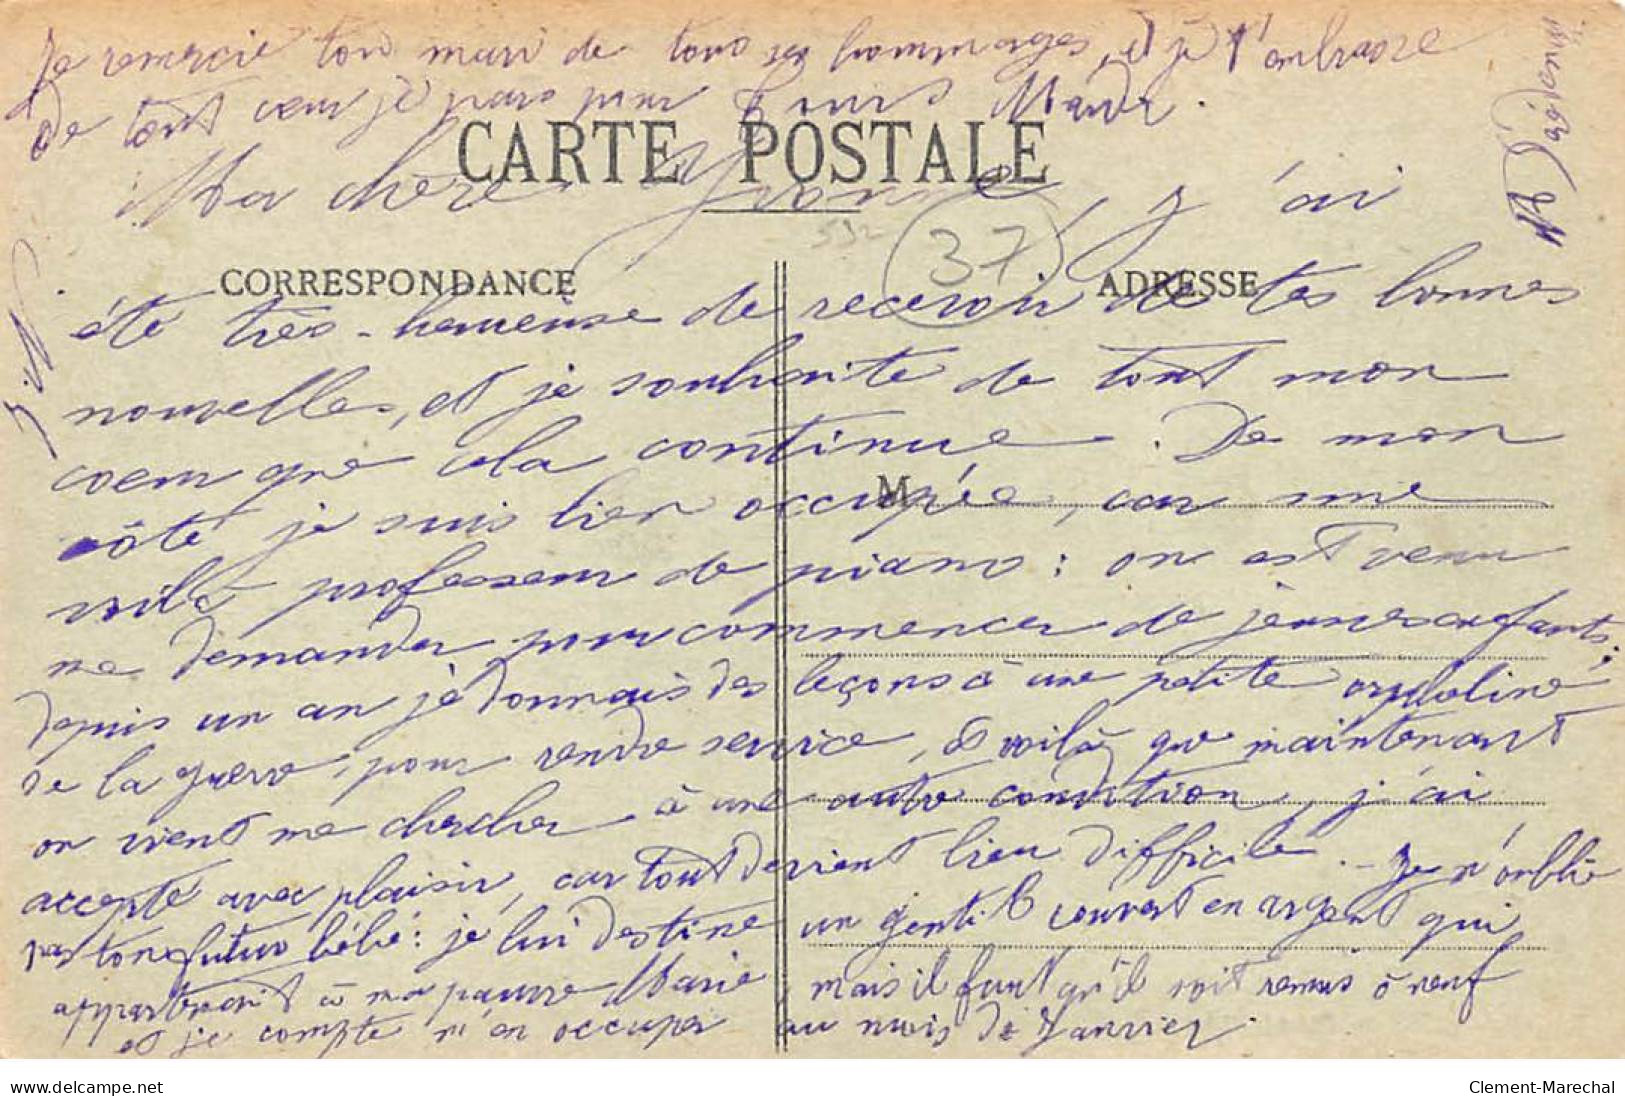 Je remercie ton mari de tous ses hommages, et je t'embrasse
de tout coeur je pars pour Mardi.
CARTE POSTALE
Ma chère Yvonne, j'ai
532
37
CORRESPONDANCE
ADRESSE
été très-heureuse de recevoir de tes bonnes
nouvelles, et je souhaite de tout mon
coeur que cela continue. De mon
M
côté je suis bien occupée, car me
voilà professeur de piano : on est venu
me demander pour commencer de jeunes enfants.
depuis un an je donnais des leçons à une petite orpheline
de la guerre, pour rendre service, et voilà que maintenant
on vient me chercher à une autre condition, j'ai
accepté avec plaisir, car tout devient bien difficile. Je n'oublie
pas ton futur bébé : je lui destine un gentil couvert en argent qui
appartenait à ma pauvre Marie, mais il faut qu'il soit remis à neuf
et je compte m'en occuper au mois de Janvier.
delcampe.net
Clement-Marechal